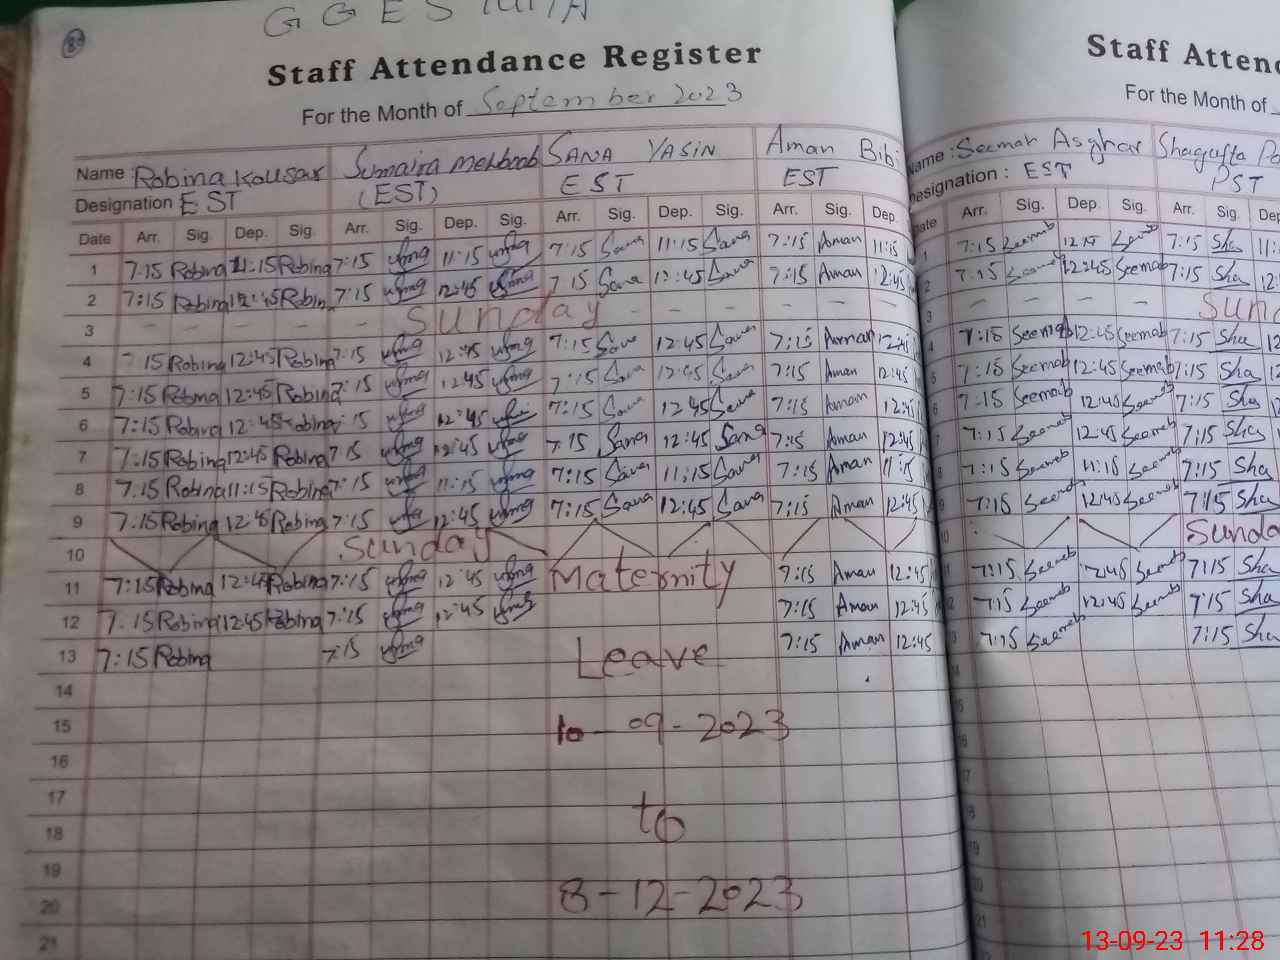 89
G G E S
Staff Attendance Register
For the Month of September 2023
Name : Robina Kousar Sumaira Mehboob SANA YASIN Aman Bibi
Designation EST (EST) EST EST
Date Arr. Sig. Dep. Sig. Arr. Sig. Dep. Sig. Arr. Sig. Dep. Sig. Arr. Sig. Dep.
1 7:15 Robina 11:15 Robina 7:15 11:15 7:15 Sana 11:15 Sana 7:15 Aman 11:15
2 7:15 Robina 12:45 Robina 7:15 12:45 7:15 Sana 12:45 Sana 7:15 Aman 12:45
3 - - - - Sunday - - - - - -
4 7:15 Robina 12:45 Robina 7:15 12:45 7:15 Sana 12:45 Sana 7:15 Aman 12:45
5 7:15 Robina 12:45 Robina 7:15 12:45 7:15 Sana 12:45 Sana 7:15 Aman 12:45
6 7:15 Robina 12:45 Robina 7:15 12:45 7:15 Sana 12:45 Sana 7:15 Aman 12:45
7 7:15 Robina 12:45 Robina 7:15 12:45 7:15 Sana 12:45 Sana 7:15 Aman 12:45
8 7:15 Robina 11:15 Robina 7:15 11:15 7:15 Sana 11:15 Sana 7:15 Aman 11:15
9 7:15 Robina 12:45 Robina 7:15 12:45 7:15 Sana 12:45 Sana 7:15 Aman 12:45
10 Sunday
11 7:15 Robina 12:45 Robina 7:15 12:45 Maternity 7:15 Aman 12:45
12 7:15 Robina 12:45 Robina 7:15 12:45 7:15 Aman 12:45
13 7:15 Robina 7:15 Leave 7:15 Aman 12:45
14
15 10-09-2023
16
17
18 to
19
20 8-12-2023
21
Staff Atten
For the Month of
Name : Seemab Asghar Shagufta
Designation : EST PST
Date Arr. Sig. Dep. Sig. Arr. Sig. Dep
1 7:15 Seemab 12:15 Seemab 7:15 Sha 11:
2 7:15 Seemab 12:45 Seemab 7:15 Sha 12:
3 - - - - Sun
4 7:15 Seemab 12:45 Seemab 7:15 Sha 12
5 7:15 Seemab 12:45 Seemab 7:15 Sha 12
6 7:15 Seemab 12:45 Seemab 7:15 Sha 12
7 7:15 Seemab 12:45 Seemab 7:15 Sha
8 7:15 Seemab 11:15 Seemab 7:15 Sha
9 7:15 Seemab 12:45 Seemab 7:15 Sha
10 Sunda
11 7:15 Seemab 12:45 Seemab 7:15 Sha
12 7:15 Seemab 12:45 Seemab 7:15 Sha
13 7:15 Seemab 7:15 Sha
14
15
16
17
18
19
20
21
13-09-23 11:28